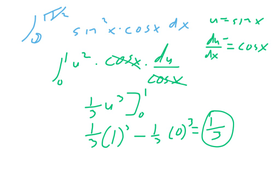 ∫₀^(π/2) sin²x · cosx dx
u = sinx
du/dx = cosx
∫₀¹ u² · cosx · du/cosx
1/3 u³ ]₀¹
1/3 (1)³ − 1/3 (0)³ = 1/3